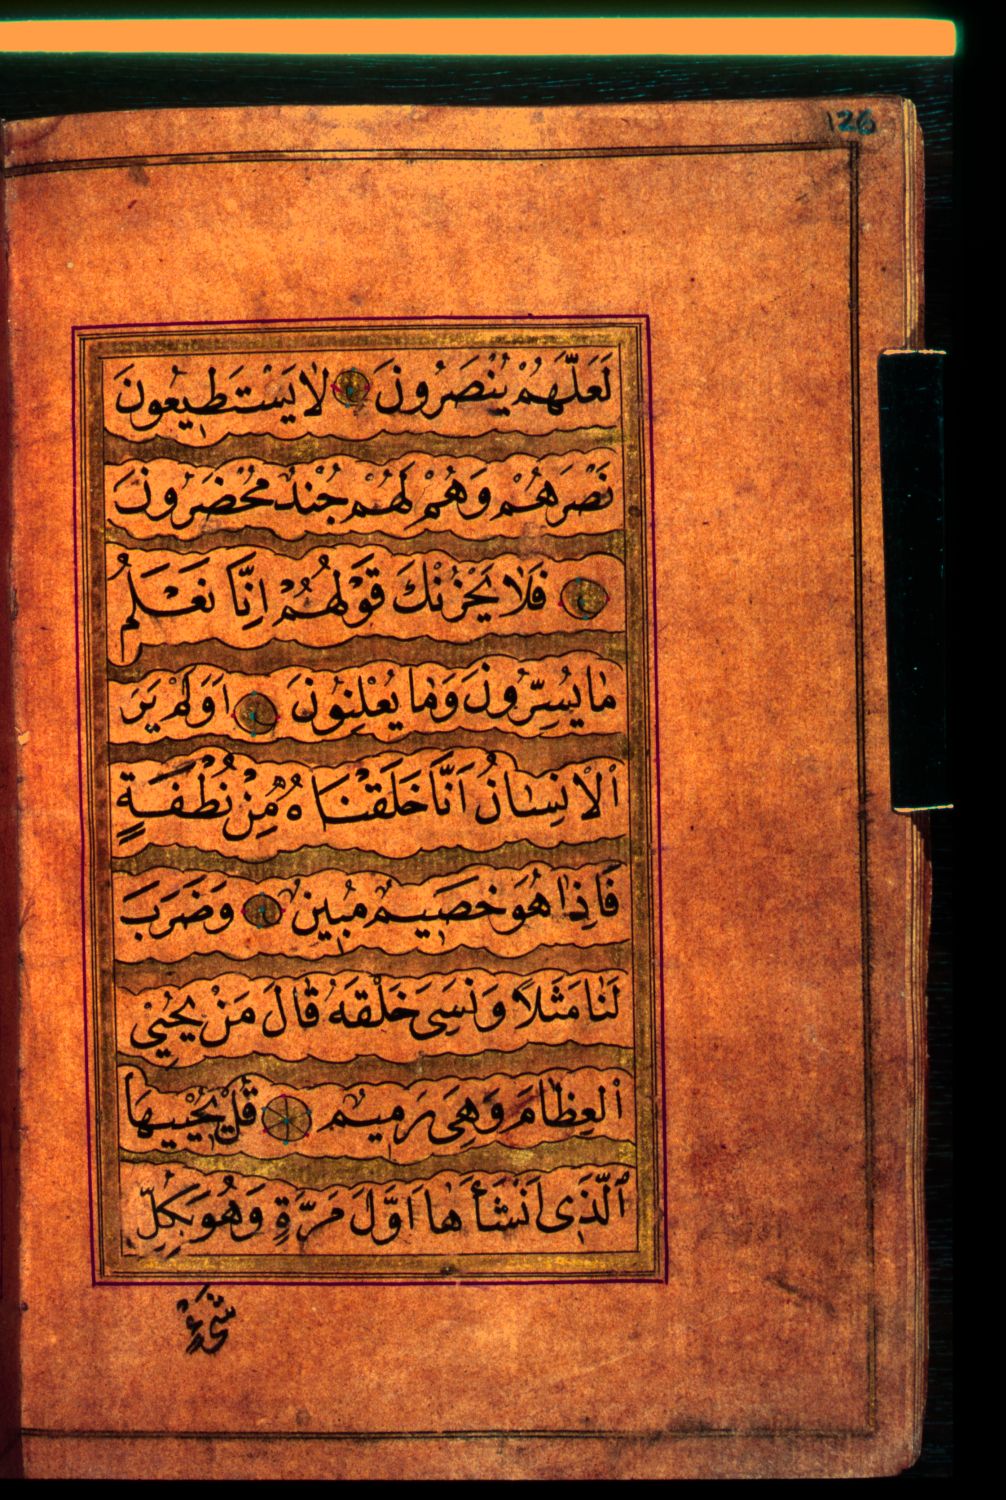 126
لَعَلَّهُمْ يُنْصَرُونَ لَا يَسْتَطِيعُونَ
نَصْرَهُمْ وَهُمْ لَهُمْ جُنْدٌ مُحْضَرُونَ
فَلَا يَحْزُنْكَ قَوْلُهُمْ اِنَّا نَعْلَمُ
مَا يُسِرُّونَ وَمَا يُعْلِنُونَ اَوَلَمْ يَرَ
الْاِنْسَانُ اَنَّا خَلَقْنَاهُ مِنْ نُطْفَةٍ
فَاِذَا هُوَ خَصِيمٌ مُبِينٌ وَضَرَبَ
لَنَا مَثَلًا وَنَسِىَ خَلْقَهُ قَالَ مَنْ يُحْيِىْ
الْعِظَامَ وَهِىَ رَمِيمٌ قُلْ يُحْيِيهَا
الَّذِى اَنْشَأَهَا اَوَّلَ مَرَّةٍ وَهُوَ بِكُلِّ
شَىْءٍ